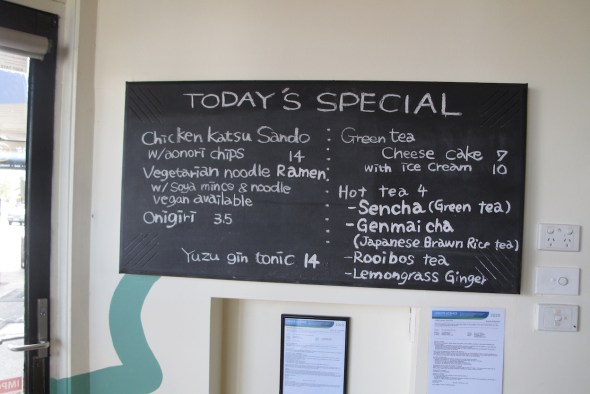 TODAY'S SPECIAL
Chicken Katsu Sando
w/aonori chips 14
Vegetarian noodle Ramen
w/ Soya mince & noodle
vegan available
Onigiri 3.5
Yuzu gin tonic 14
Green tea
Cheese cake 7
with ice cream 10
Hot tea 4
-Sencha (Green tea)
-Genmai cha
(Japanese Brawn Rice tea)
-Rooibos tea
-Lemongrass Ginger